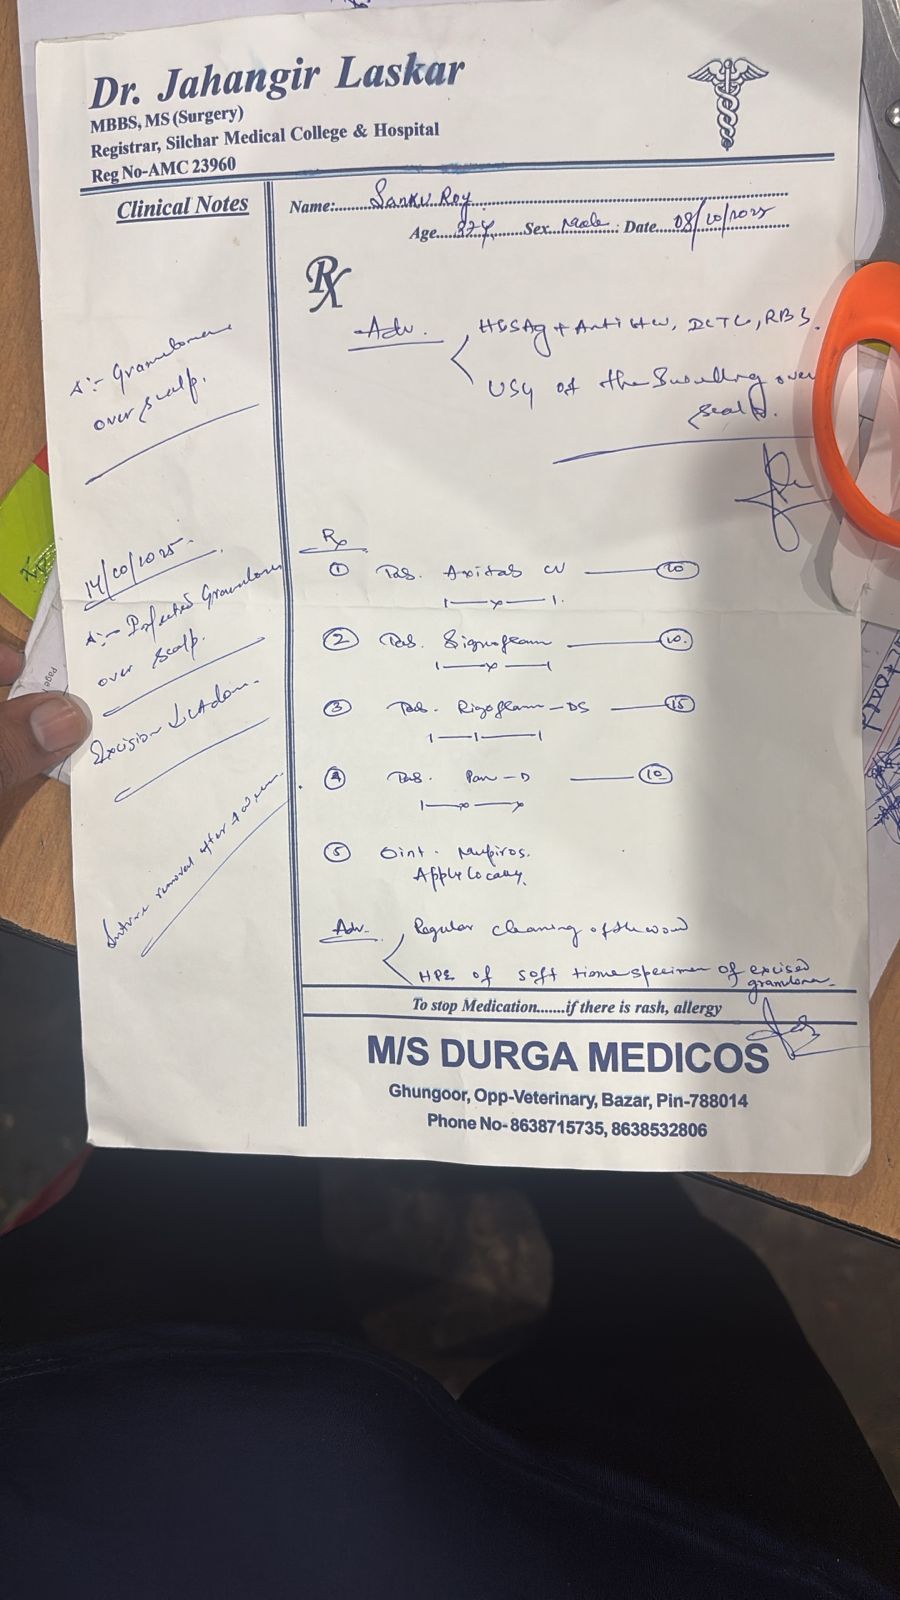 Dr. Jahangir Laskar
MBBS, MS (Surgery)
Registrar, Silchar Medical College & Hospital
Reg No-AMC 23960
Clinical Notes
Name:
Roy
Age
Sex Male Date 08/10/2025
Rx
Adv. HBsAg + Anti HCV, RBS.
USG of the Swelling over
scalp.
Granuloma
over scalp.
14/10/2025.
Infected Granuloma
over scalp.
Excision
removed after
Rx
① Tab. CV 10
1—x—1.
② Tab. 10.
1—x—1
③ Tab. -DS 15
1—1—1
④ Tab. Pan-D 10
1—x—x
⑤ Oint. Mupiros.
Apply Locally.
Adv. Regular cleaning of the
HPE of soft tissue specimen of excised
granuloma
To stop Medication.......if there is rash, allergy
M/S DURGA MEDICOS
Ghungoor, Opp-Veterinary, Bazar, Pin-788014
Phone No- 8638715735, 8638532806